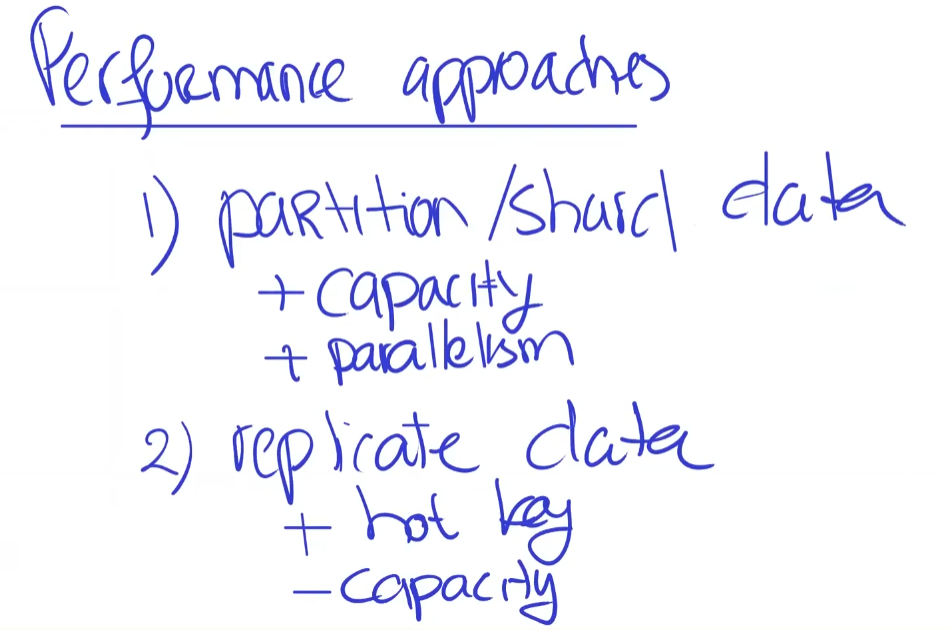 Performance approaches
1) partition/shard data
+ capacity
+ parallelism
2) replicate data
+ hot key
- capacity